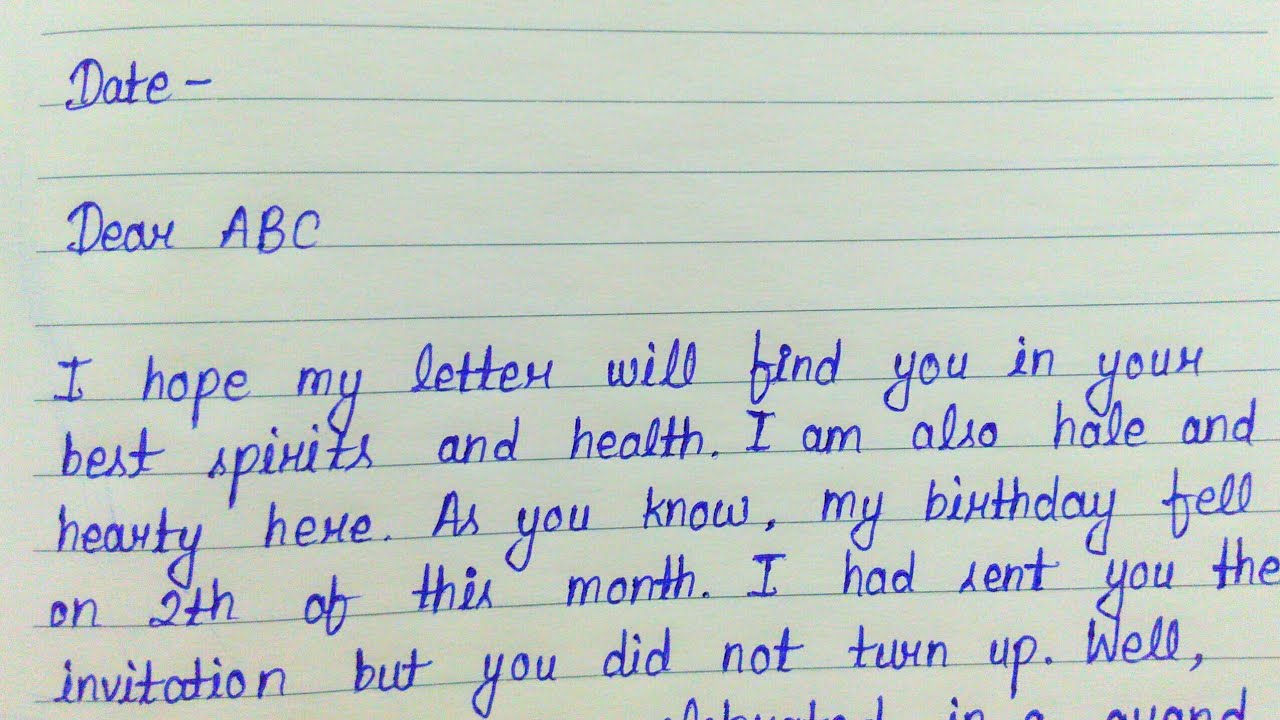 Date -
Dear ABC
I hope my letter will find you in your
best spirits and health. I am also hale and
hearty here. As you know, my birthday fell
on 2th of this month. I had sent you the
invitation but you did not turn up. Well,
in a grand